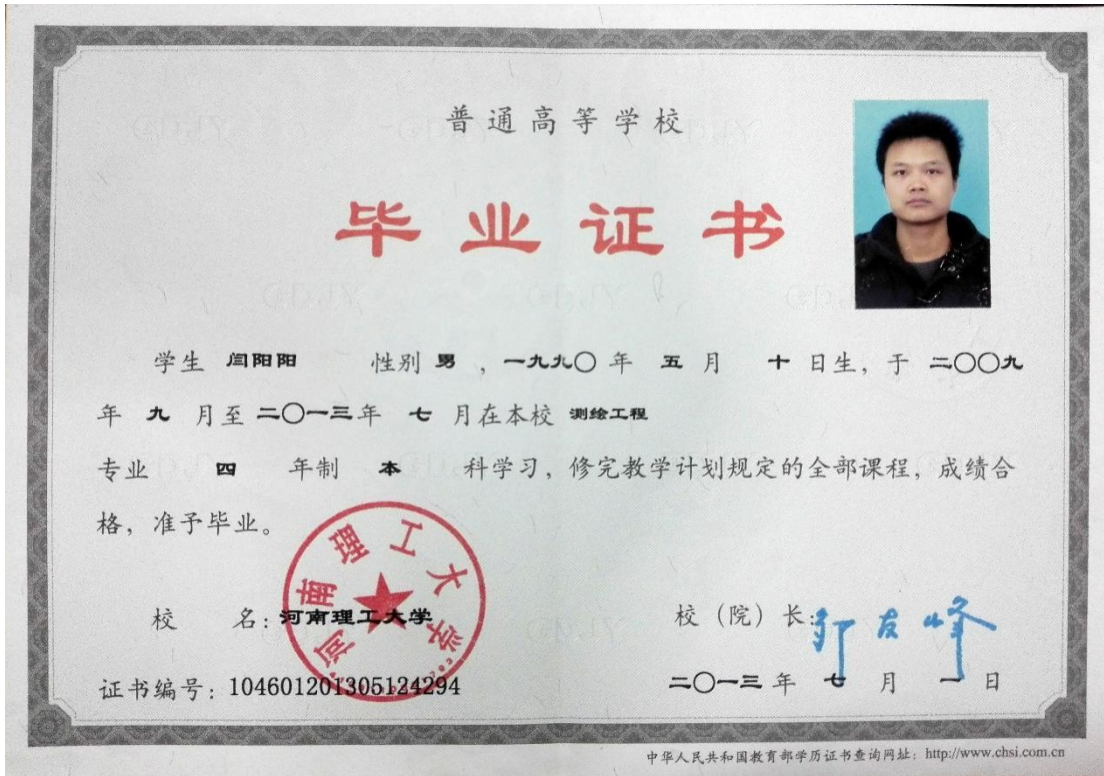 普通高等学校
毕业证书
学生 闫阳阳 性别 男 ，一九九〇 年 五 月 十 日生，于 二〇〇九
年 九 月至 二〇一三 年 七 月在本校 测绘工程
专业 四 年制 本 科学习，修完教学计划规定的全部课程，成绩合
格，准予毕业。
河南理工大学
校 名：河南理工大学 校（院）长：邹友峰
证书编号：104601201305124294 二〇一三 年 七 月 一 日
中华人民共和国教育部学历证书查询网址：http://www.chsi.com.cn